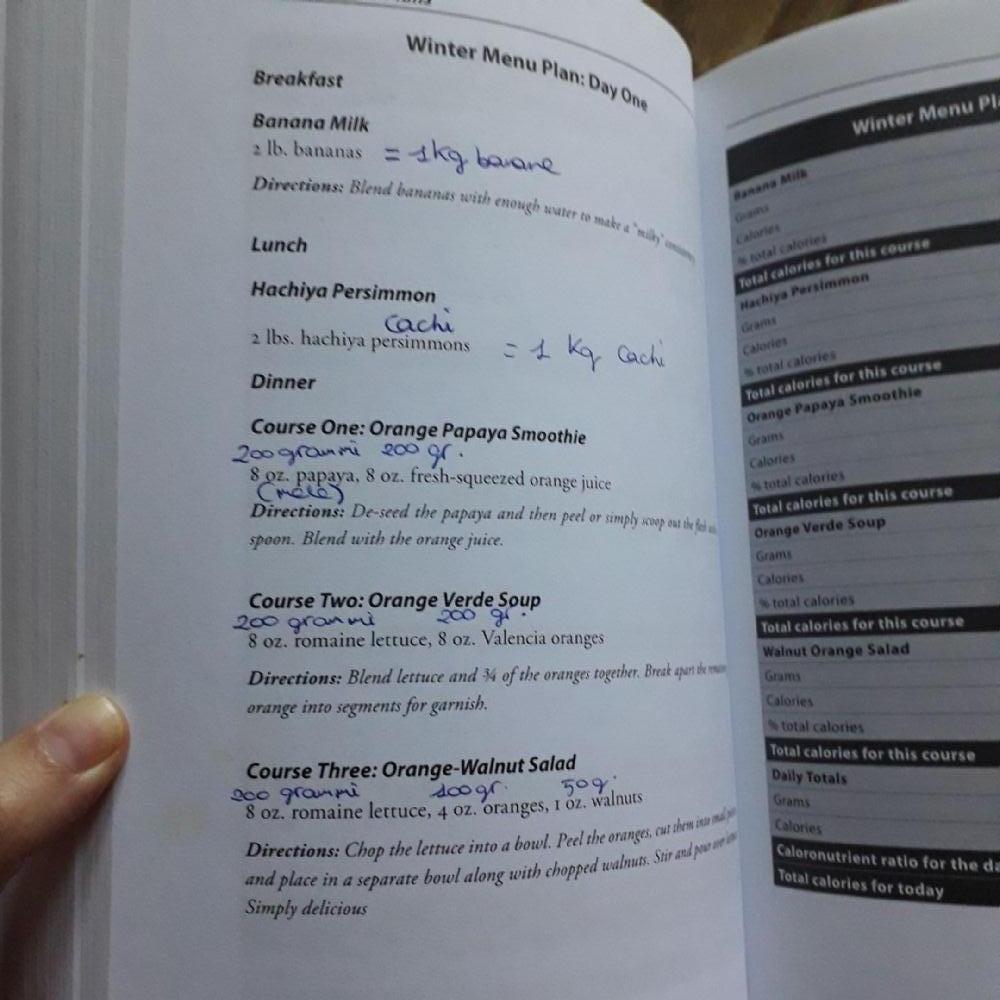 Winter Menu Plan: Day One
Breakfast
Banana Milk
2 lb. bananas = 1kg banane
Directions: Blend bananas with enough water to make a "milky" consistency
Lunch
Hachiya Persimmon
cachi
2 lbs. hachiya persimmons = 1 Kg cachi
Dinner
Course One: Orange Papaya Smoothie
200 grammi 200 gr.
8 oz. papaya, 8 oz. fresh-squeezed orange juice
(mele)
Directions: De-seed the papaya and then peel or simply scoop out the flesh
spoon. Blend with the orange juice.
Course Two: Orange Verde Soup
200 grammi 200 gr.
8 oz. romaine lettuce, 8 oz. Valencia oranges
Directions: Blend lettuce and ¾ of the oranges together. Break apart the
orange into segments for garnish.
Course Three: Orange-Walnut Salad
200 grammi 100gr. 50g.
8 oz. romaine lettuce, 4 oz. oranges, 1 oz. walnuts
Directions: Chop the lettuce into a bowl. Peel the oranges, cut them into small
and place in a separate bowl along with chopped walnuts. Stir and pour over
Simply delicious
Winter Menu Pl
Banana Milk
Grams
Calories
% total calories
Total calories for this course
Hachiya Persimmon
Grams
Calories
% total calories
Total calories for this course
Orange Papaya Smoothie
Grams
Calories
% total calories
Total calories for this course
Orange Verde Soup
Grams
Calories
% total calories
Total calories for this course
Walnut Orange Salad
Grams
Calories
% total calories
Total calories for this course
Daily Totals
Grams
Calories
Caloronutrient ratio for the da
Total calories for today